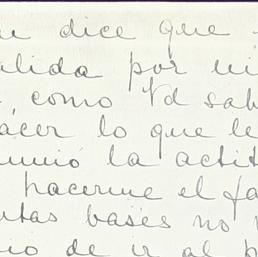 dice que
por
como Vd sab
hacer lo que le
la actit
hacerme el fa
tas bases no
de ir al